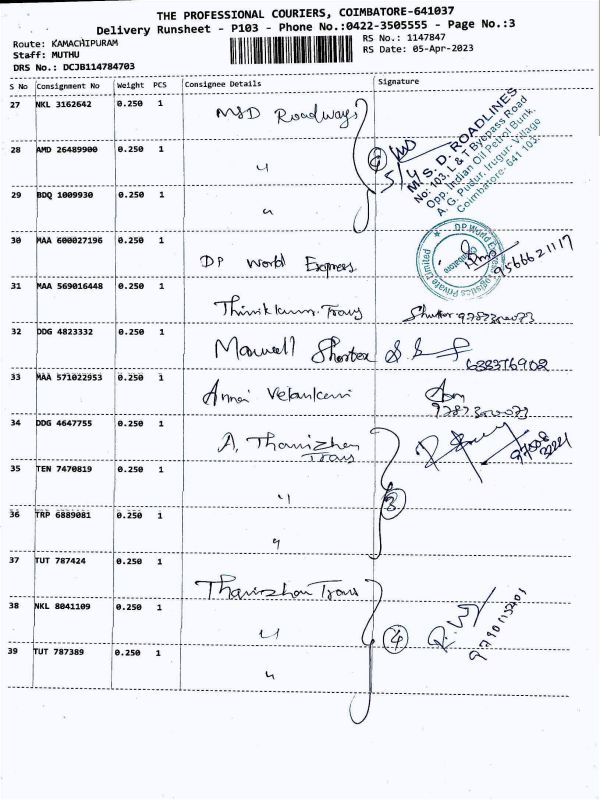 THE PROFESSIONAL COURIERS, COIMBATORE-641037
Delivery Runsheet - P103 - Phone No.:0422-3505555 - Page No.:3
Route: KAMACHIPURAM
Staff: MUTHU
DRS No.: DCJB114784703
RS No.: 1147847
RS Date: 05-Apr-2023
S No Consignment No Weight PCS Consignee Details Signature
27 NKL 3162642 0.250 1 MSD Roadways
28 AMD 26489900 0.250 1 "
29 BDQ 1009930 0.250 1 "
M/S. D. ROADLINES
No: 103, L & T Byepass Road
Opp. Indian Oil Petrol Bunk,
A. G. Pudur, Irugur- Village
Coimbatore- 641 103.
30 MAA 600027196 0.250 1 DP World Express
DP World Express Logistics Private Limited
Coimbatore
9566621117
31 MAA 569016448 0.250 1
32 DDG 4823332 0.250 1 Maxwell
638376902
33 MAA 571022953 0.250 1 Annai Velankani
34 DDG 4647755 0.250 1 A. Thamizhan
Trans
35 TEN 7470819 0.250 1 "
3
36 TRP 6889081 0.250 1 "
37 TUT 787424 0.250 1 Thamizhan Trans
38 NKL 8041109 0.250 1 "
4
39 TUT 787389 0.250 1 "